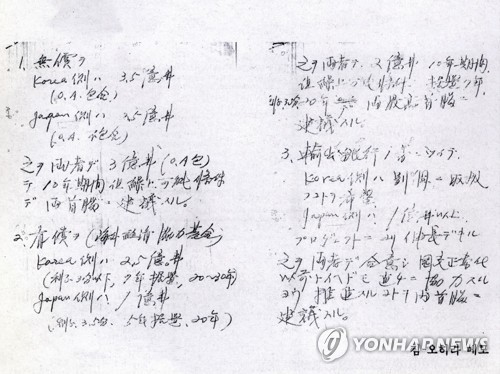 1. 無償ヲ
Korea側ハ 3.5億弗
(O.A.包含)
Japan側ハ 2.5億弗
(O.A. 不包含)
之ヲ両者デ 3億弗(O.A包)
デ10年期間 但繰上ゲ可能条件
デ両首脳ニ建議スル。
2. 有償ヲ(海外経済協力基金)
Korea側ハ 2.5億弗
(利子3分以下, 7年据置, 20~30年)
Japan側ハ 1億弗
(利子3.5分, 5年据置, 20年)
之ヲ両者デ 2億弗 10年期間
但繰上ゲ可能条件 据置7年
利子3.5分 20年 両首脳ニ
建議スル。
3. 輸出入銀行 ニツイテ
Korea側ハ別個ニ取扱
フコトヲ希望
Japan側ハ 1億弗以上
プロジェクトニヨリ伸長デキル
之ヲ両者デ合意シ国交正常化
以前トイヘドモ直チニ協力スル
ヨウ推進スルコトヲ両首脳ニ
建議スル。
김 오히라 메모
YONHAPNEWS